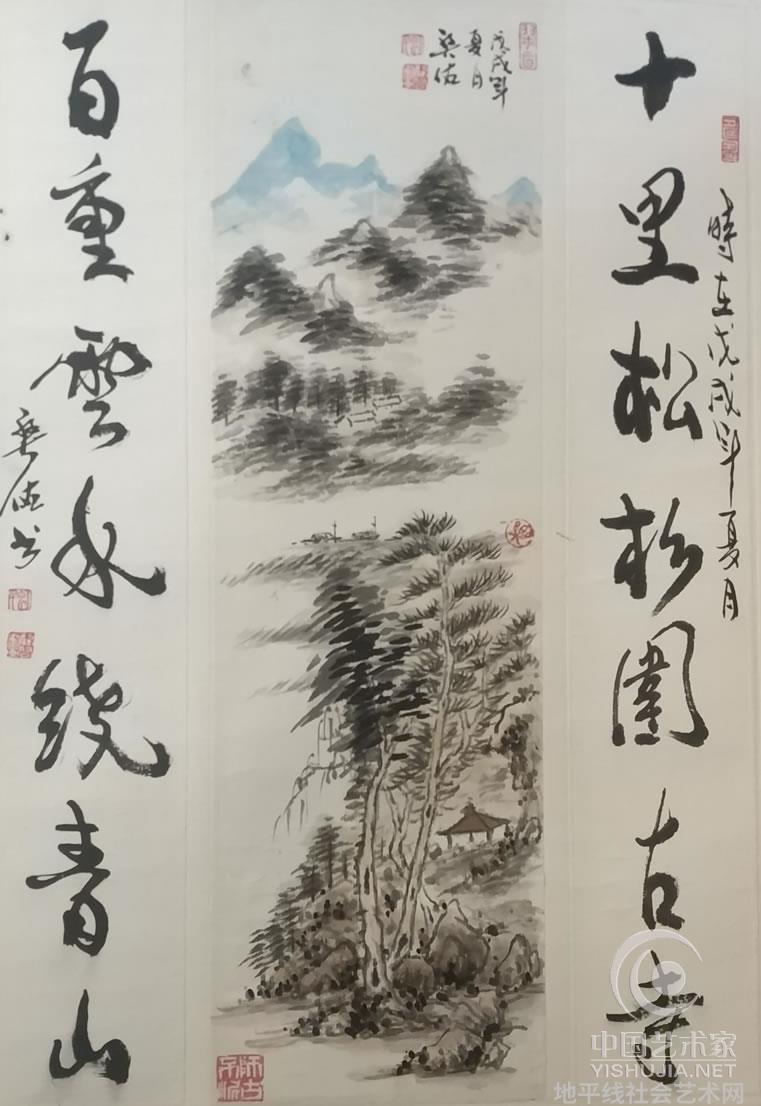 十里松杉围古寺
時在戊戌年夏月
百重雲水绕青山
戊戌年
夏月
中国艺术家
YISHUJIA.NET
地平线社会艺术网